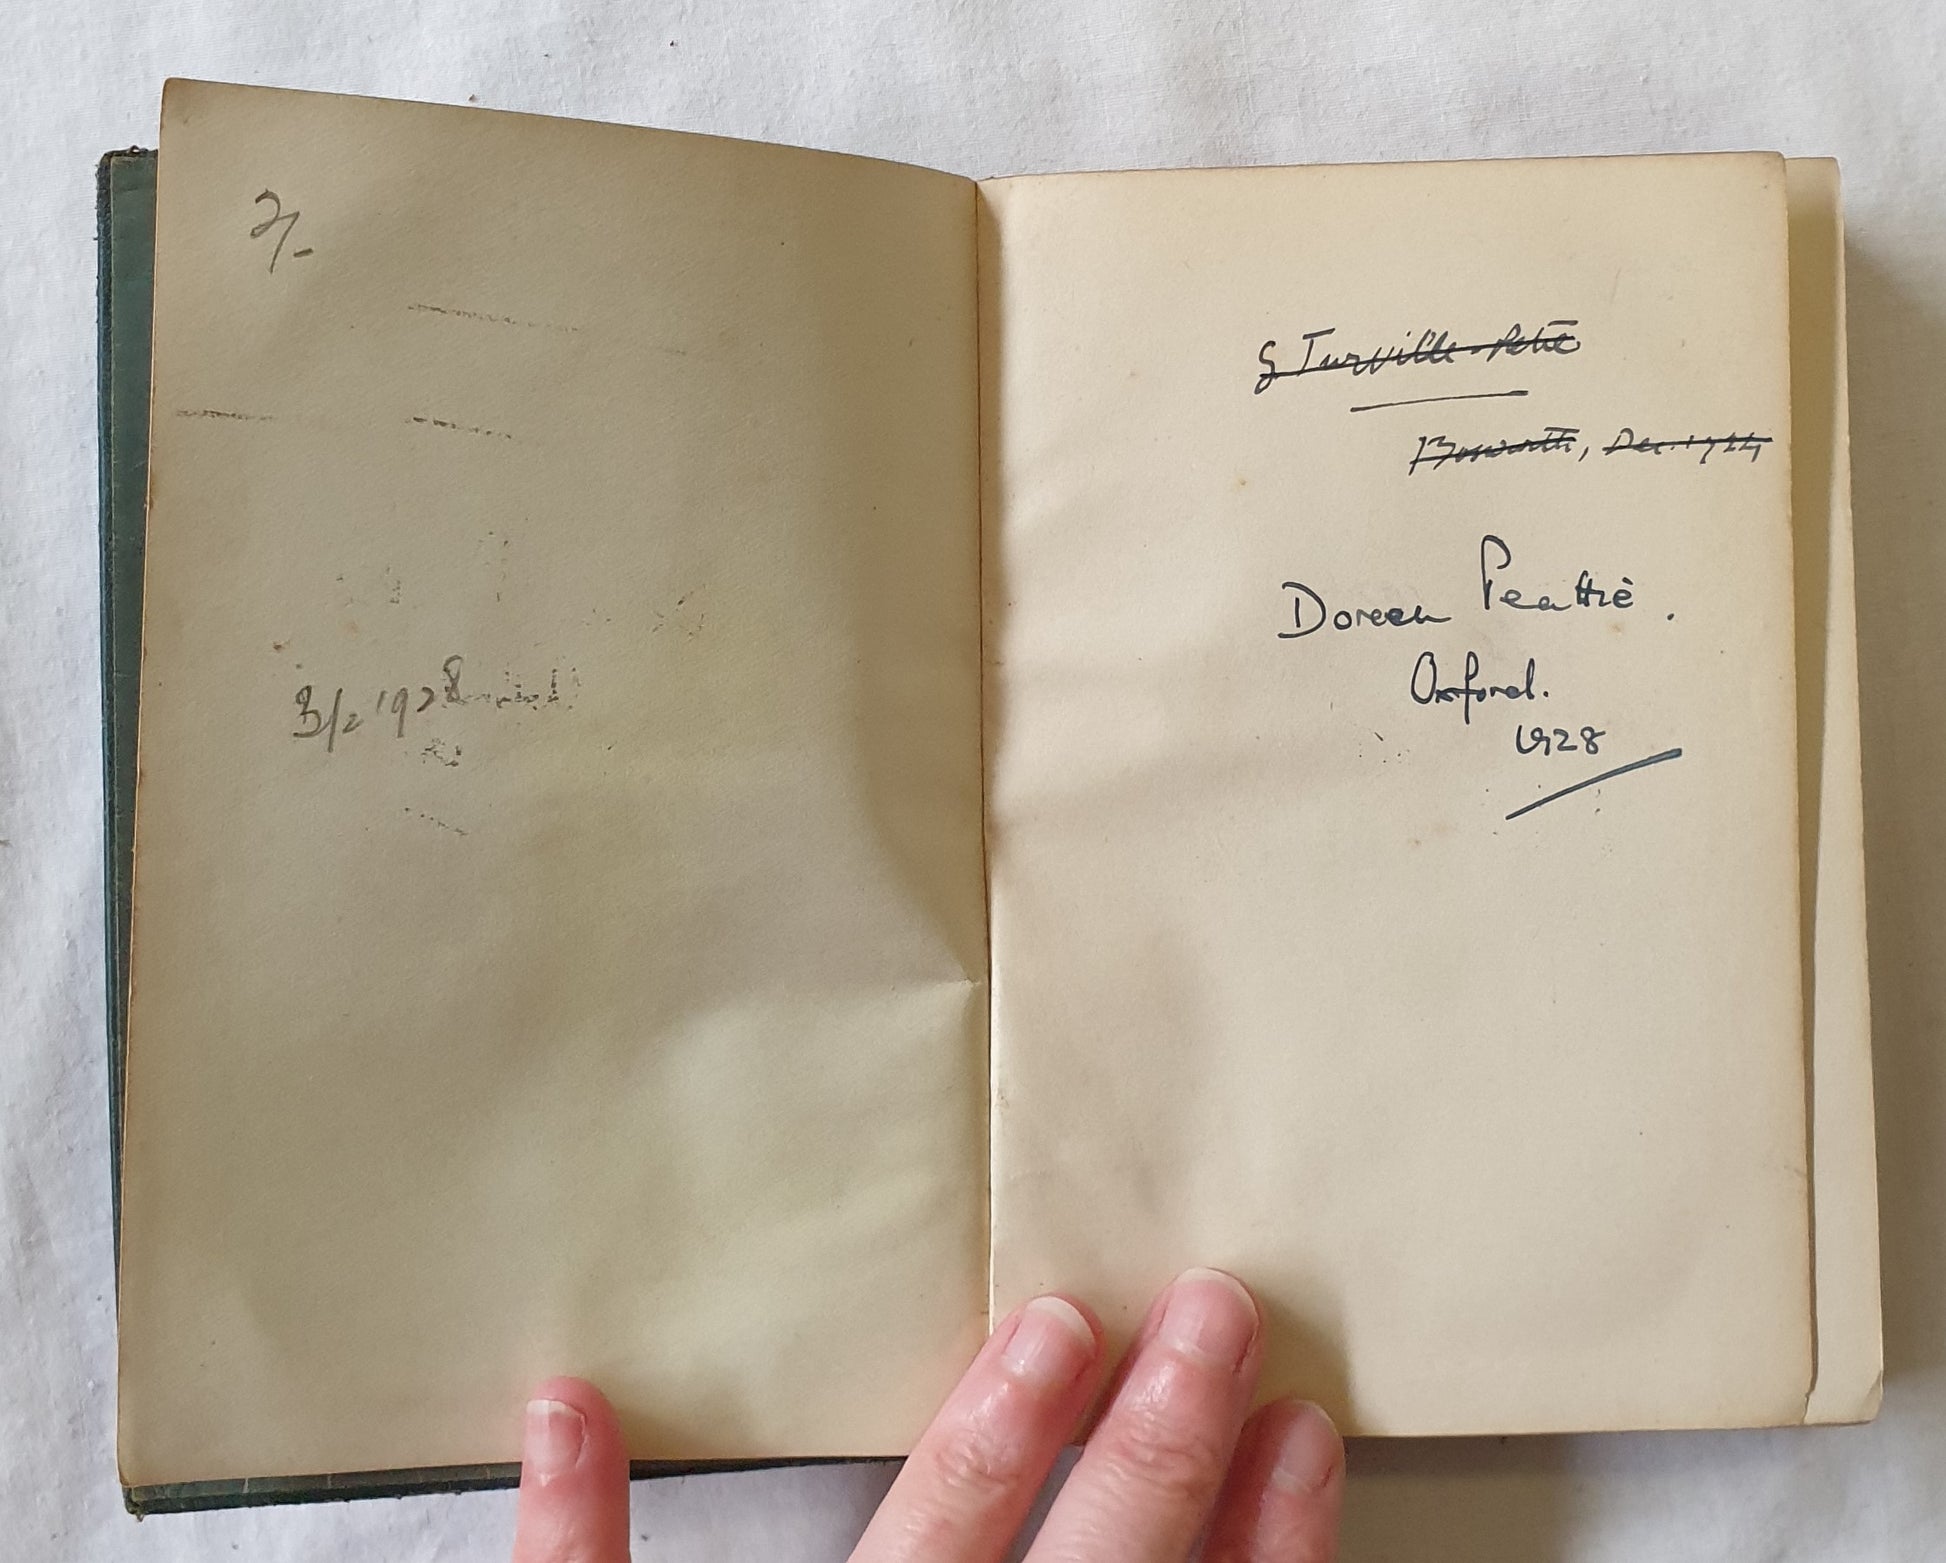 2/-
3/2 1928
G Turville-Petre
Bosworth, Dec. 1924
Doreen Peattie.
Oxford.
1928